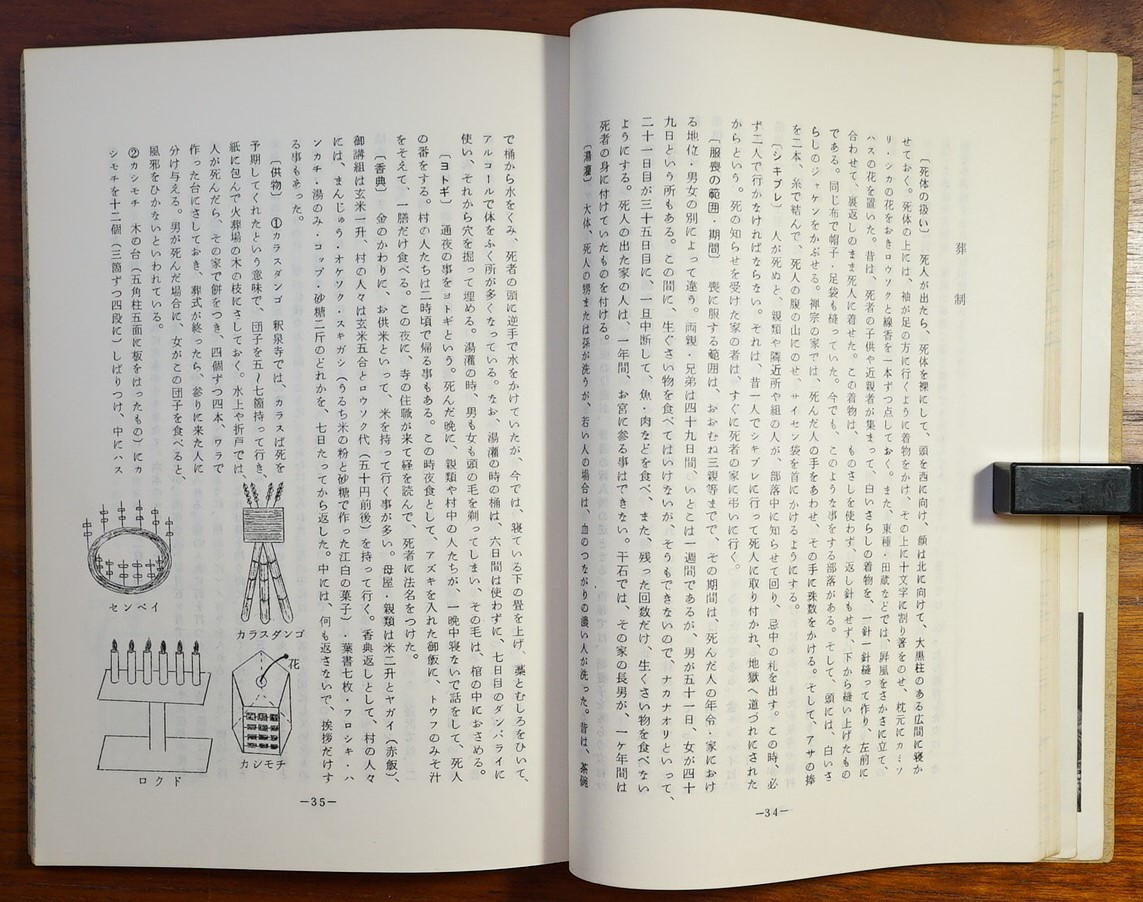 葬制
〔死体の扱い〕　死人が出たら、死体を裸にして、頭を西に向け、顔は北に向けて、大黒柱のある広間に寝か
せておく。死体の上には、袖が足の方に行くように着物をかけ、その上に十文字に割り箸をのせ、枕元にカミソ
リ・シカの花をおきロウソクと線香を一本ずつ点しておく。また、東種・田蔵などでは、屏風をさかさに立て、
ハスの花を置いた。昔は、死者の子供や近親者が集まって、白いさらしの着物を、一針一針縫って作り、左前に
合わせて、裏返しのまま死人に着せた。この着物は、ものさしを使わず、返し針もせず、下から縫い上げたもの
である。同じ布で帽子・足袋も縫っていた。今でも、このような事をする部落がある。そして、頭には、白いさ
らしのジャケンをかぶせる。禅宗の家では、死んだ人の手をあわせ、その手に珠数をかける。そして、アサの捧
を二本、糸で結んで、死人の腹の山にのせ、サイセン袋を首にかけるようにする。
〔シキブレ〕　人が死ぬと、親類や隣近所や組の人が、部落中に知らせて回り、忌中の札を出す。この時、必
ず二人で行かなければならない。それは、昔一人でシキブレに行って死人に取り付かれ、地獄へ道づれにされた
からという。死の知らせを受けた家の者は、すぐに死者の家に弔いに行く。
〔服喪の範囲・期間〕　喪に服する範囲は、おおむね三親等までで、その期間は、死んだ人の年令・家におけ
る地位・男女の別によって違う。両親・兄弟は四十九日間、いとこは一週間であるが、男が五十一日、女が四十
九日という所もある。この間に、生ぐさい物を食べてはいけないが、そうもできないので、ナカナオリといって、
二十一日目が三十五日目に、一旦中断して、魚・肉などを食べ、また、残った回数だけ、生ぐさい物を食べない
ようにする。死人の出た家の人は、一年間、お宮に参る事はできない。千石では、その家の長男が、一ヶ年間は
死者の身に付けていたものを付ける。
〔湯灌〕　大体、死人の甥または孫が洗うが、若い人の場合は、血のつながりの濃い人が洗った。昔は、茶碗
―34―
で桶から水をくみ、死者の頭に逆手で水をかけていたが、今では、寝ている下の畳を上げ、藁とむしろをひいて、
アルコールで体をふく所が多くなっている。なお、湯灌の時の桶は、六日間は使わずに、七日目のダンバライに
使い、それから穴を掘って埋める。湯灌の時、男も女も頭の毛を剃ってしまい、その毛は、棺の中におさめる。
〔ヨトギ〕　通夜の事をヨトギという。死んだ晩に、親類や村中の人たちが、一晩中寝ないで話をして、死人
の番をする。村の人たちは二時頃で帰る事もある。この時夜食として、アズキを入れた御飯に、トウフのみそ汁
をそえて、一膳だけ食べる。この夜に、寺の住職が来て経を読んで、死者に法名をつけた。
〔香典〕　金のかわりに、お供米といって、米を持って行く事が多い。母屋・親類は米二升とヤガイ（赤飯）、
御講組は玄米一升、村の人々は玄米五合とロウソク代（五十円前後）を持って行く。香典返しとして、村の人々
には、まんじゅう・オケソク・スキガシ（うるち米の粉と砂糖で作った江白の菓子）・葉書七枚・フロシキ・ハ
ンカチ・湯のみ・コップ・砂糖二斤のどれかを、七日たってから返した。中には、何も返さないで、挨拶だけす
る事もあった。
〔供物〕　①カラスダンゴ　釈泉寺では、カラスは死を
予期してくれたという意味で、団子を五〜七箇持って行き、
紙に包んで火葬場の木の枝にさしておく。水上や折戸では、
人が死んだら、その家で餅をつき、四個ずつ四本、ワラで
作った台にさしておき、葬式が終ったら、参りに来た人に
分け与える。男が死んだ場合に、女がこの団子を食べると、
風邪をひかないといわれている。
②カシモチ　木の台（五角柱五面に板をはったもの）にカ
シモチを十二個（三箇ずつ四段に）しばりつけ、中にハス
カラスダンゴ
センベイ
花
カシモチ
ロクド
―35―